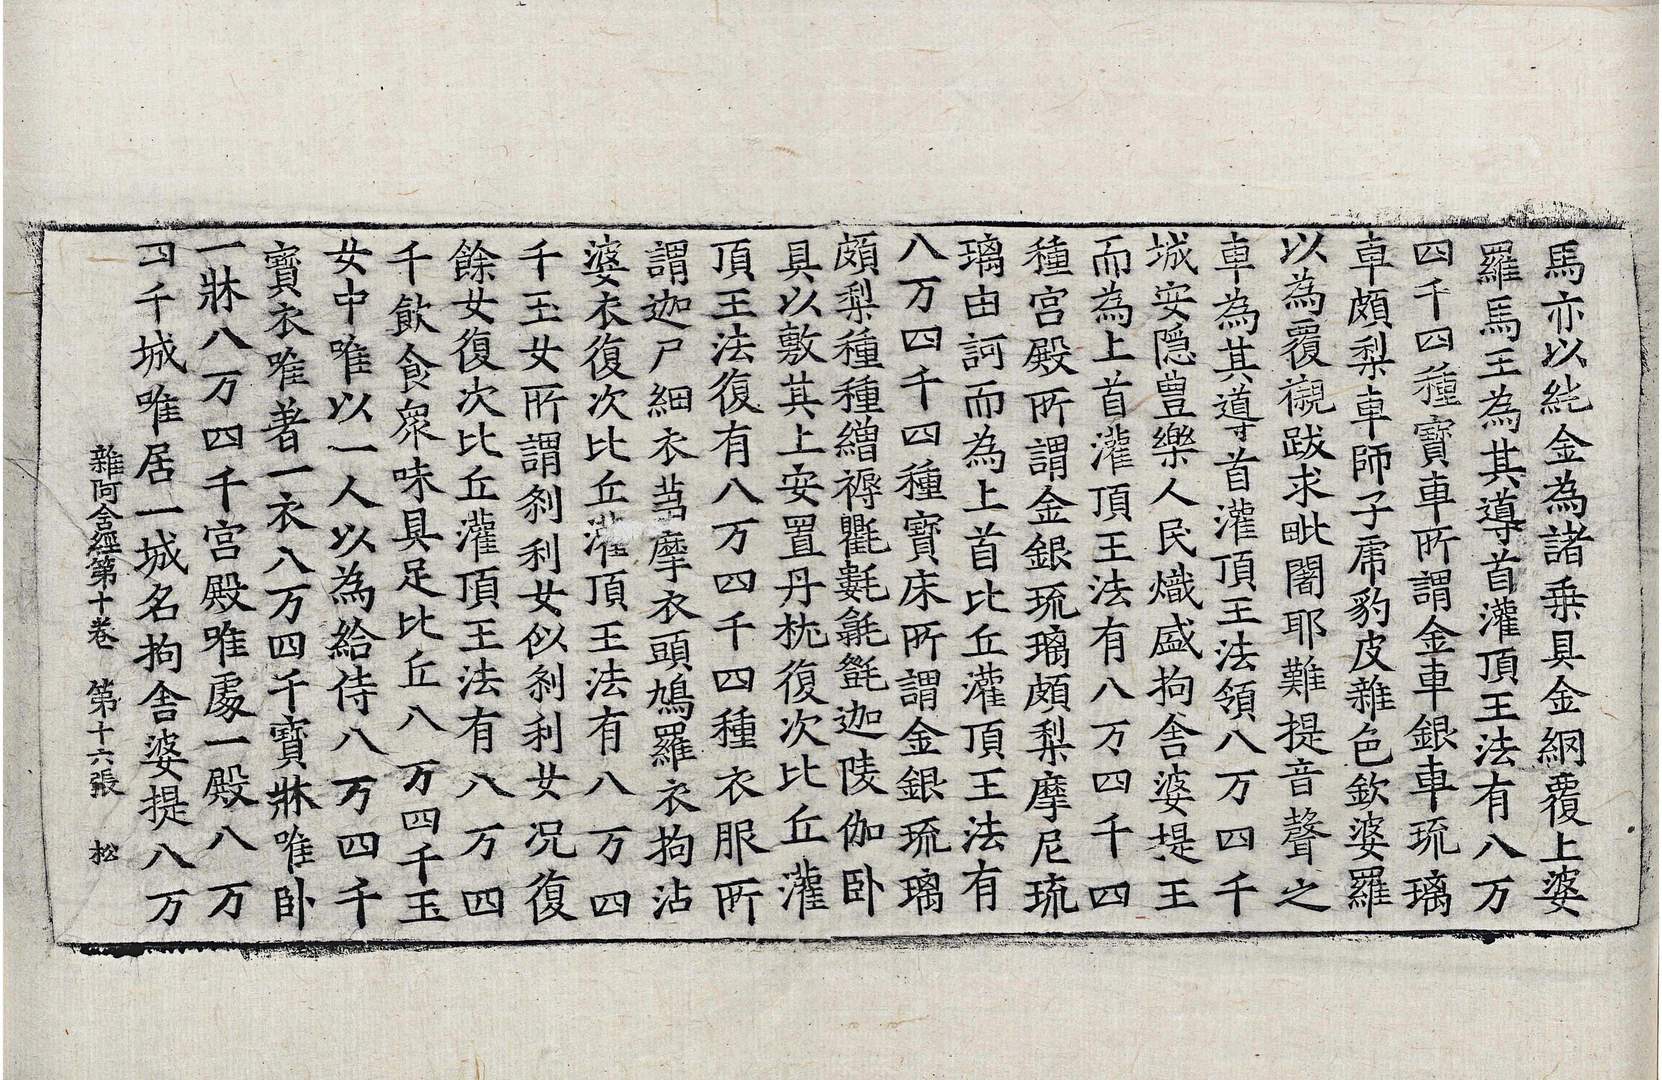 馬亦以純金為諸乗具金網覆上婆
羅馬王為其導首灌頂王法有八万
四千四種寶車所謂金車銀車琉璃
車頗梨車師子虎豹皮雜色欽婆羅
以為覆襯跋求毗闍耶難提音聲之
車為其導首灌頂王法領八万四千
城安隱豊樂人民熾盛拘舍婆堤王
而為上首灌頂王法有八万四千四
種宮殿所謂金銀琉璃頗梨摩尼琉
璃由訶而為上首比丘灌頂王法有
八万四千四種寶床所謂金銀琉璃
頗梨種種繒褥氍㲣毾㲪迦陵伽卧
具以敷其上安置丹枕復次比丘灌
頂王法復有八万四千四種衣服所
謂迦尸細衣芻摩衣頭鳩羅衣拘沾
婆衣復次比丘灌頂王法有八万四
千玉女所謂刹利女似刹利女况復
餘女復次比丘灌頂王法有八万四
千飲食衆味具足比丘八万四千玉
女中唯以一人以為給侍八万四千
寶衣唯著一衣八万四千寶牀唯卧
一牀八万四千宮殿唯處一殿八万
四千城唯居一城名拘舍婆提八万
雜阿含經第十卷 第十六張 松